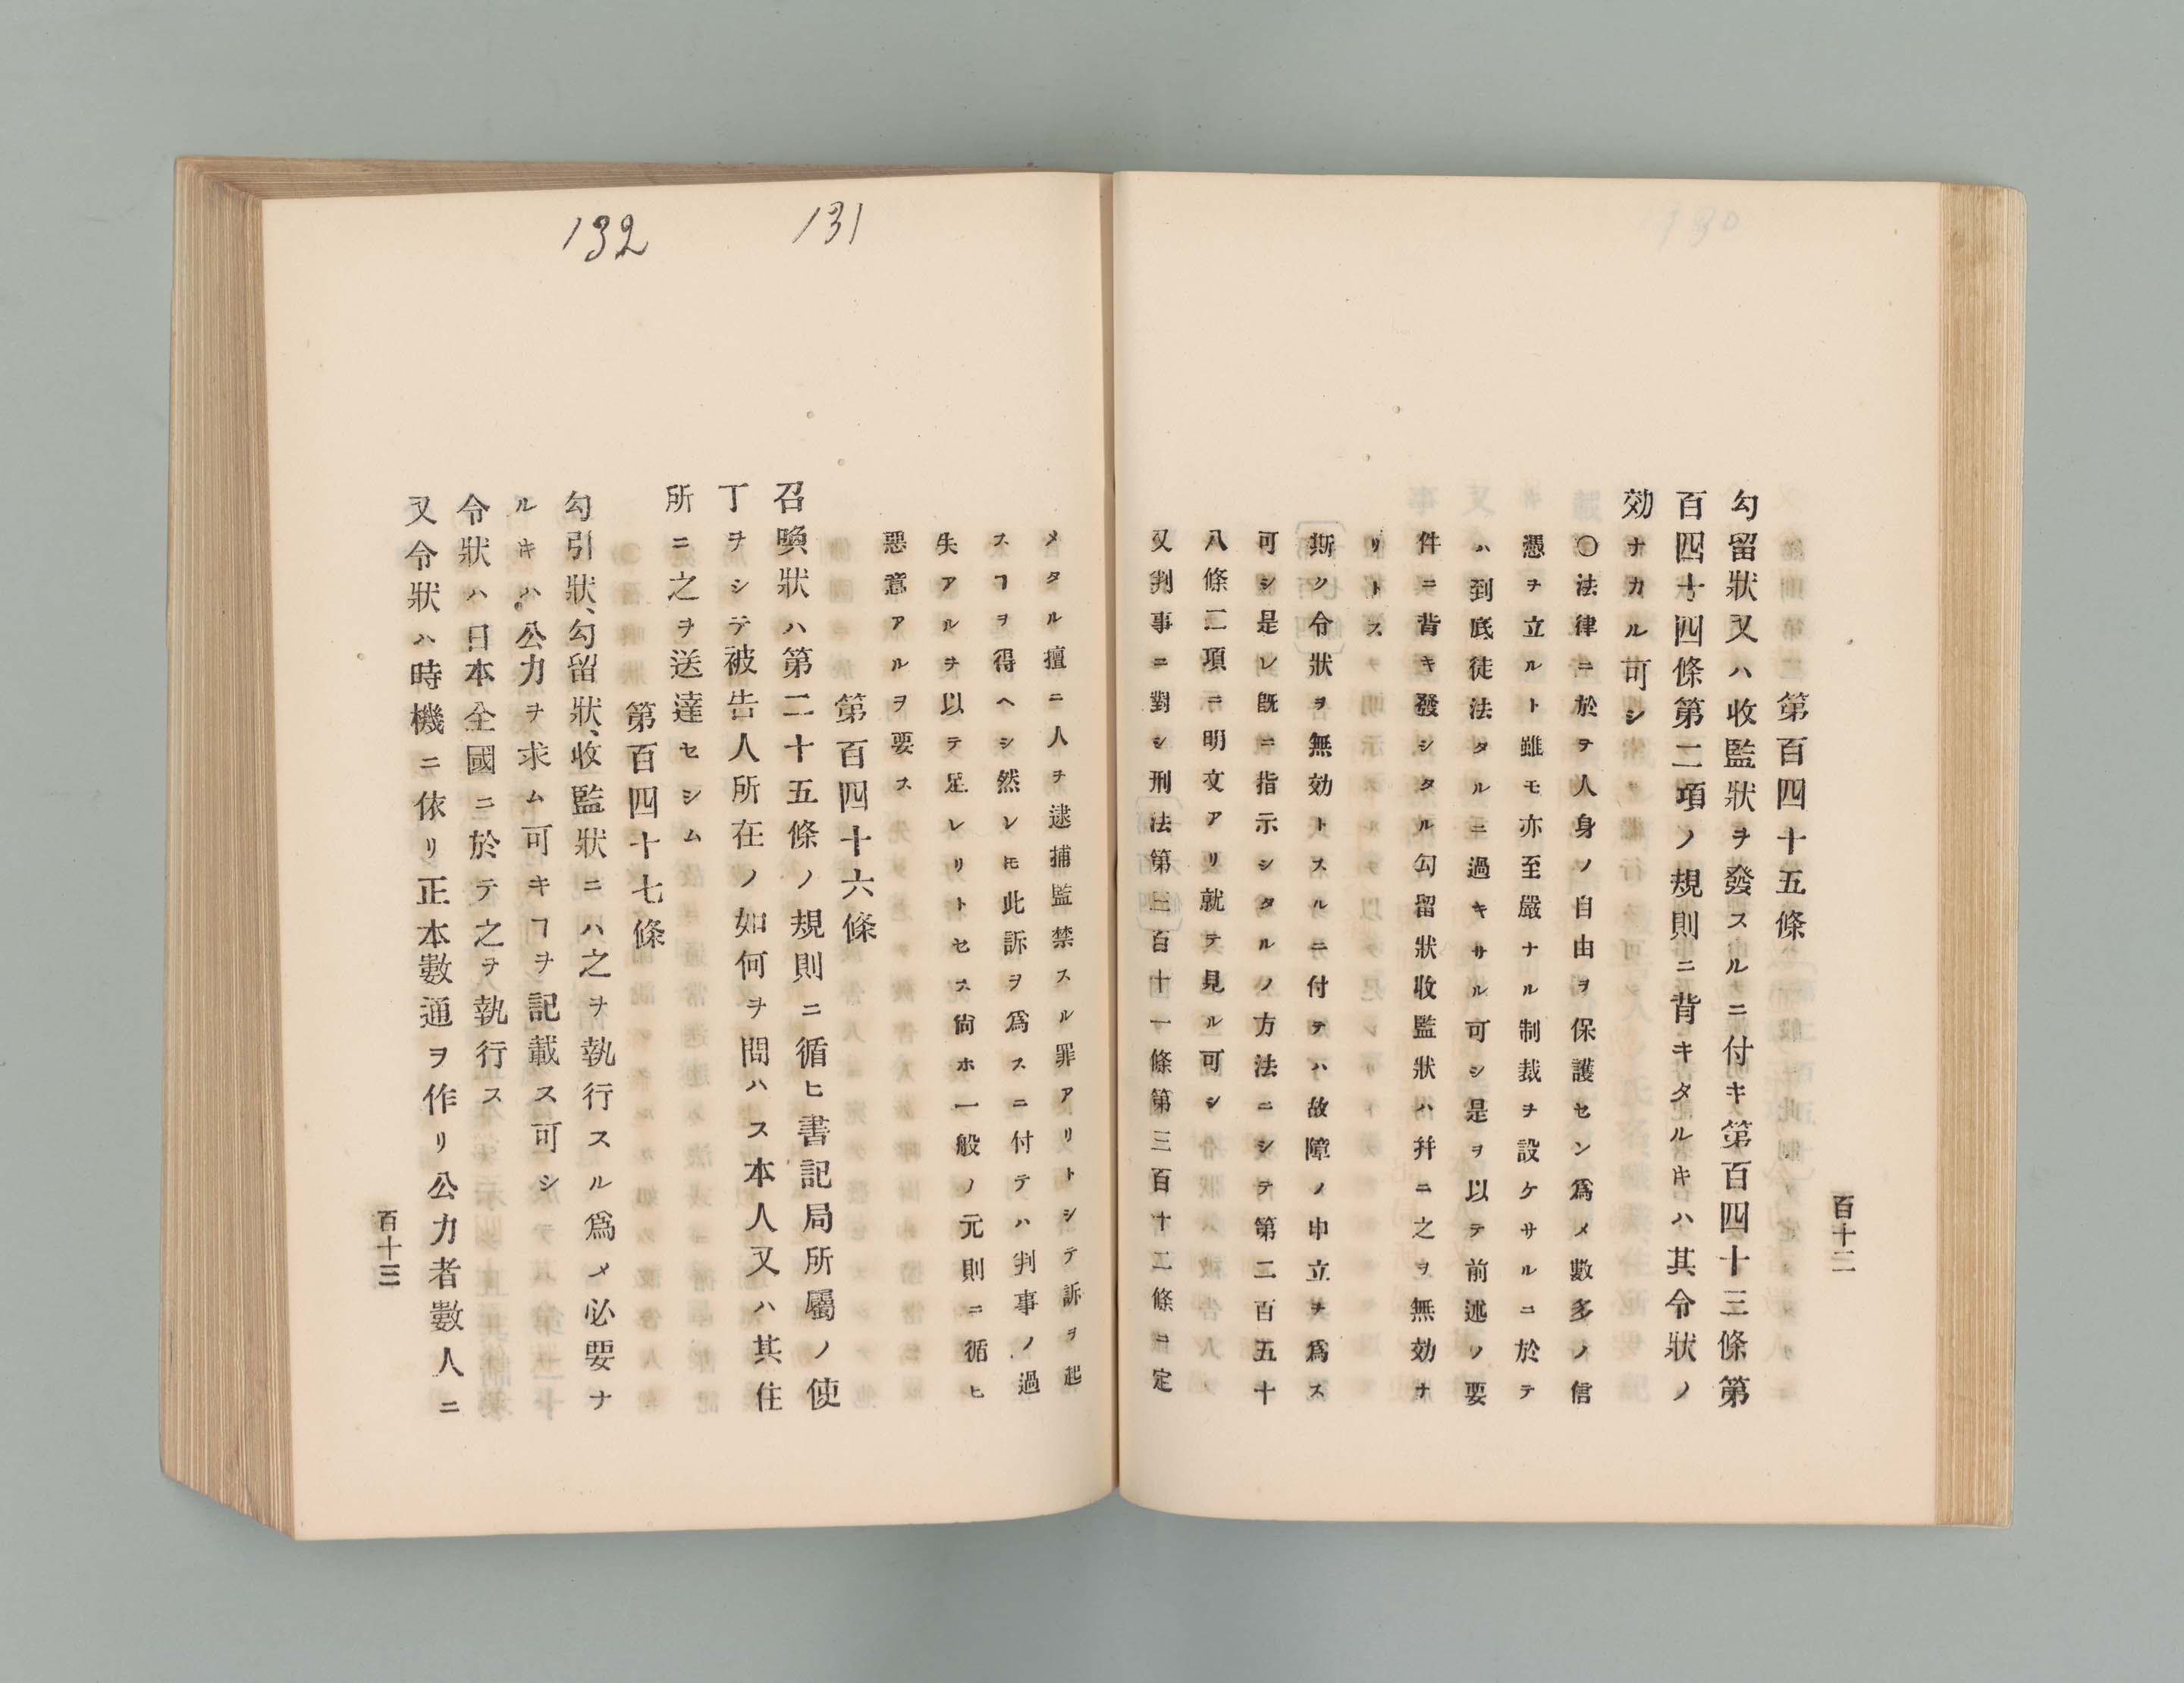 百十二
130
第百四十五條
勾留狀又ハ收監狀ヲ發スルニ付キ第百四十三條第
百四十四條第二項ノ規則ニ背キタルキハ其令狀ノ
効ナカル可シ
〇法律ニ於テ人身ノ自由ヲ保護セン爲メ數多ノ信
憑ヲ立ルト雖モ亦至嚴ナル制裁ヲ設ケサルニ於テ
ハ到底徒法タルニ過キサル可シ是ヲ以テ前述ノ要
件ニ背キ發シタル勾留狀收監狀ハ幷ニ之ヲ無効ナ
リトス
斯ク令狀ヲ無効トスルニ付テハ故障ノ申立ヲ爲ス
可シ是レ既ニ指示シタルノ方法ニシテ第二百五十
八條二項ニ明文アリ就テ見ル可シ
又判事ニ對シ刑法第三百十一條第三百十二條ニ定
131
132
メタル擅ニ人ヲ逮捕監禁スル罪アリトシテ訴ヲ起
スヿヲ得ヘシ然レ𪜈此訴ヲ爲スニ付テハ判事ノ過
失アルヲ以テ足レリトセス尙ホ一般ノ元則ニ循ヒ
惡意アルヲ要ス
第百四十六條
召喚狀ハ第二十五條ノ規則ニ循ヒ書記局所屬ノ使
丁ヲシテ被告人所在ノ如何ヲ問ハス本人又ハ其住
所ニ之ヲ送達セシム
第百四十七條
勾引狀、勾留狀、收監狀ニハ之ヲ執行スル爲メ必要ナ
ルキハ公力ヲ求ム可キヿヲ記載ス可シ
令狀ハ日本全國ニ於テ之ヲ執行ス
又令狀ハ時機ニ依リ正本數通ヲ作リ公力者數人ニ
百十三